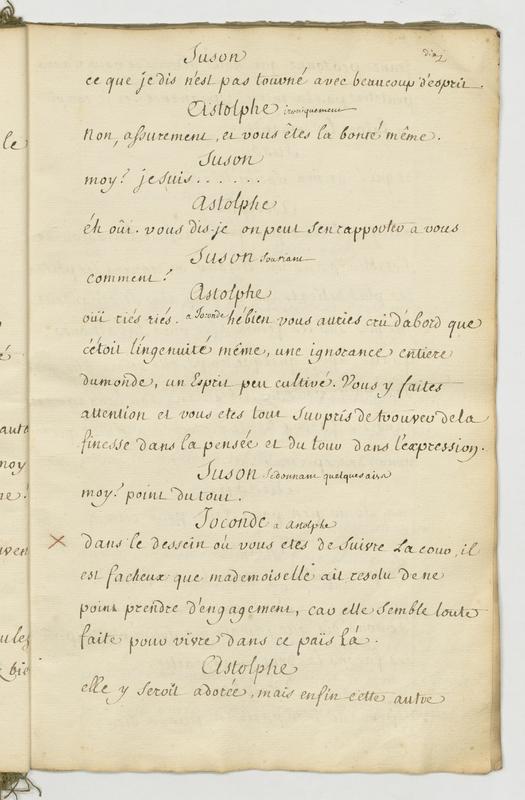 dix
Suson
ce que je dis n'est pas tourné avec beaucoup d'esprit.
Astolphe ironiquement
Non, assurement, et vous êtes la bonté même.
Suson
moy? je suis......
Astolphe
éh oüi. vous dis-je on peut sen rapporter a vous
Suson souriant
comment?
Astolphe
oüi riés riés. a Joconde hébien vous auriés crû d'abord que
c'étoit l'ingenuité même, une ignorance entiere
du monde, un Esprit peu cultivé. Vous y faites
attention et vous etes tout surpris de trouver de la
finesse dans la pensée et du tour dans l'expression.
Suson se donnant quelques airs
moy? point du tout.
Joconde a Astolphe
dans le dessein où vous etes de suivre la cour, il
est facheux que mademoiselle ait resolu de ne
point prendre d'engagement, car elle semble toute
faite pour vivre dans ce païs là.
Astolphe
elle y seroit adorée, mais enfin cette autre
le
é
auto
moy
ne!
ven
ules
bie